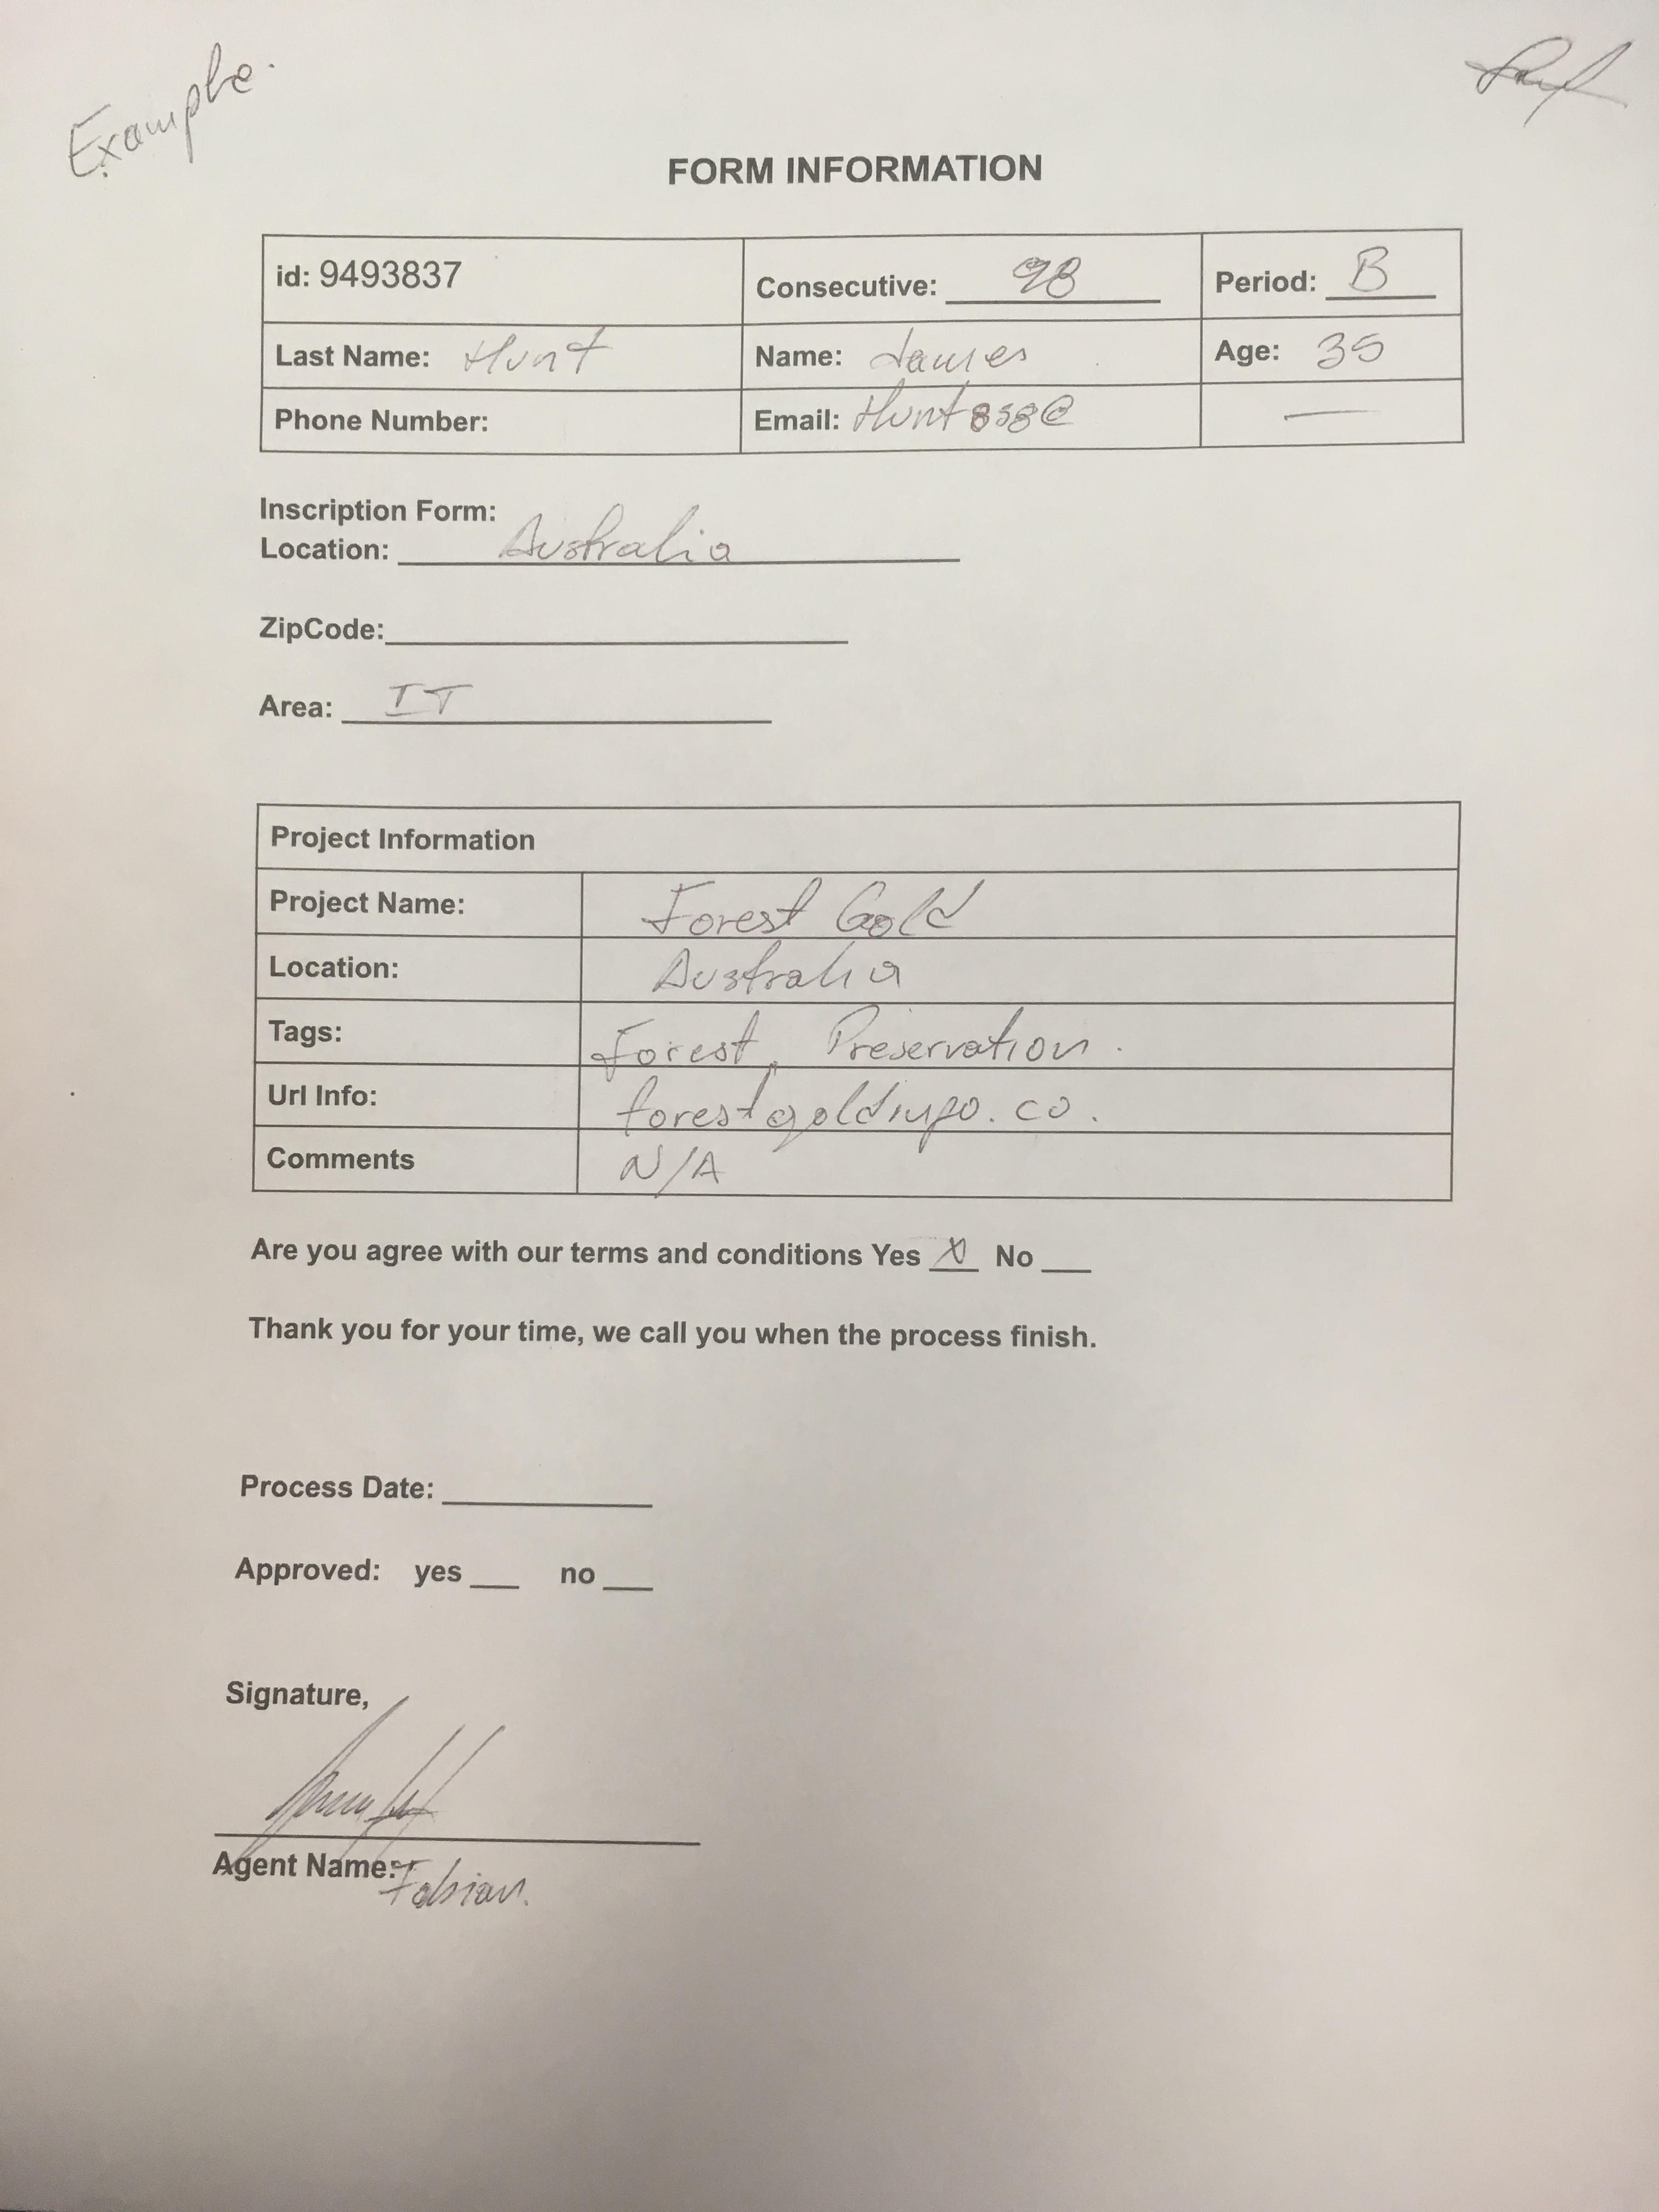 Example.
FORM INFORMATION
id: 9493837 Consecutive: 98 Period: B
Last Name: Hunt Name: James Age: 35
Phone Number: Email: Hunt858@ —
Inscription Form:
Location: Australia
ZipCode:
Area: IT
Project Information
Project Name: Forest Gold
Location: Australia
Tags: Forest, Preservation.
Url Info: forestgoldinfo.co.
Comments N/A
Are you agree with our terms and conditions Yes X No
Thank you for your time, we call you when the process finish.
Process Date:
Approved: yes no
Signature,
Agent Name: Fabian.